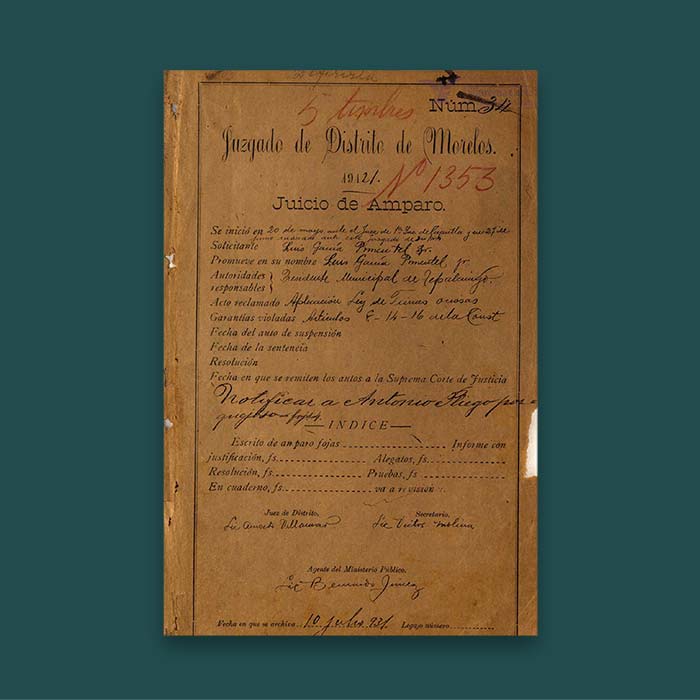 5 timbres
Núm. 34
Juzgado de Distrito de Morelos.
1921.
Nº 1353
Juicio de Amparo.
Se inició en 20 de mayo ante el Juez de 1ª Ins. de Cuautla y en 27 de
junio este Juzgado de
Solicitante Luis García Pimentel Jr.
Promueve en su nombre Luis García Pimentel, jr
Autoridades responsables } Presidente Municipal de Tepalcingo.
Acto reclamado Aplicación Ley de Tierras ociosas
Garantías violadas Artículos 8-14-16 de la Const
Fecha del auto de suspensión
Fecha de la sentencia
Resolución
Fecha en que se remiten los autos a la Suprema Corte de Justicia
Notificar a Antonio
fojs 4.
INDICE
Escrito de amparo fojas Informe con
justificación, fs. Alegatos, fs.
Resolución, fs. Pruebas, fs.
En cuaderno, fs. va a revisión
Juez de Distrito. Secretario.
Lic Villamar Lic Victor Molina
Agente del Ministerio Público.
Lic Bernardo
Fecha en que se archiva 10 julio 931. Legajo número